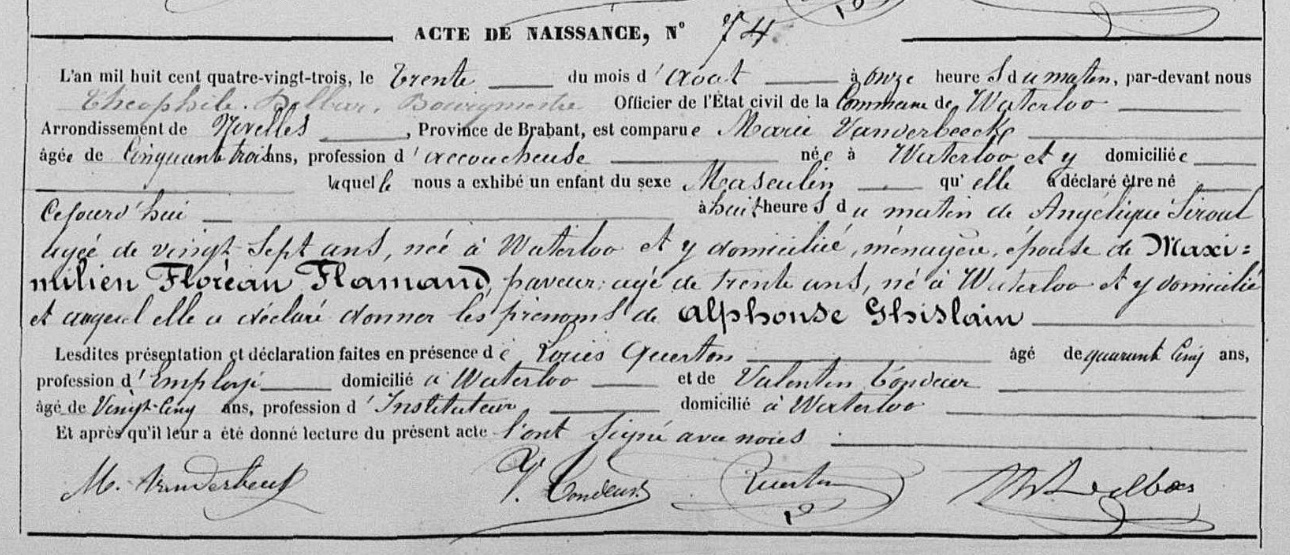 ACTE DE NAISSANCE, N° 74
L'an mil huit cent quatre-vingt-trois, le trente du mois d'août à onze heures du matin, par-devant nous
Théophile Bourgmestre Officier de l'État civil de la Commune de Waterloo
Arrondissement de Nivelles, Province de Brabant, est comparue Marie Vanderbeecke
âgée de Cinquante trois ans, profession d'accoucheuse née à Waterloo et y domiciliée
laquelle nous a exhibé un enfant du sexe Masculin qu'elle a déclaré être né
Cejourd'hui à huit heures du matin de Angélique Siraut
agée de vingt-sept ans, née à Waterloo et y domicilié, ménagère, épouse de Maxi=
milien Floréan Flamand, paveur, agé de trente ans, né à Waterloo et y domicilié
et auquel elle a déclaré donner les prénoms de Alphonse Ghislain
Lesdites présentation et déclaration faites en présence de Louis Querton âgé de quarante cinq ans,
profession d'Employé domicilié à Waterloo et de Valentin Tondeur
âgé de Vingt-cinq ans, profession d'Instituteur domicilié à Waterloo
Et après qu'il leur a été donné lecture du présent acte l'ont signé avec nous
M. Vanderbeeck V. Tondeur Querton